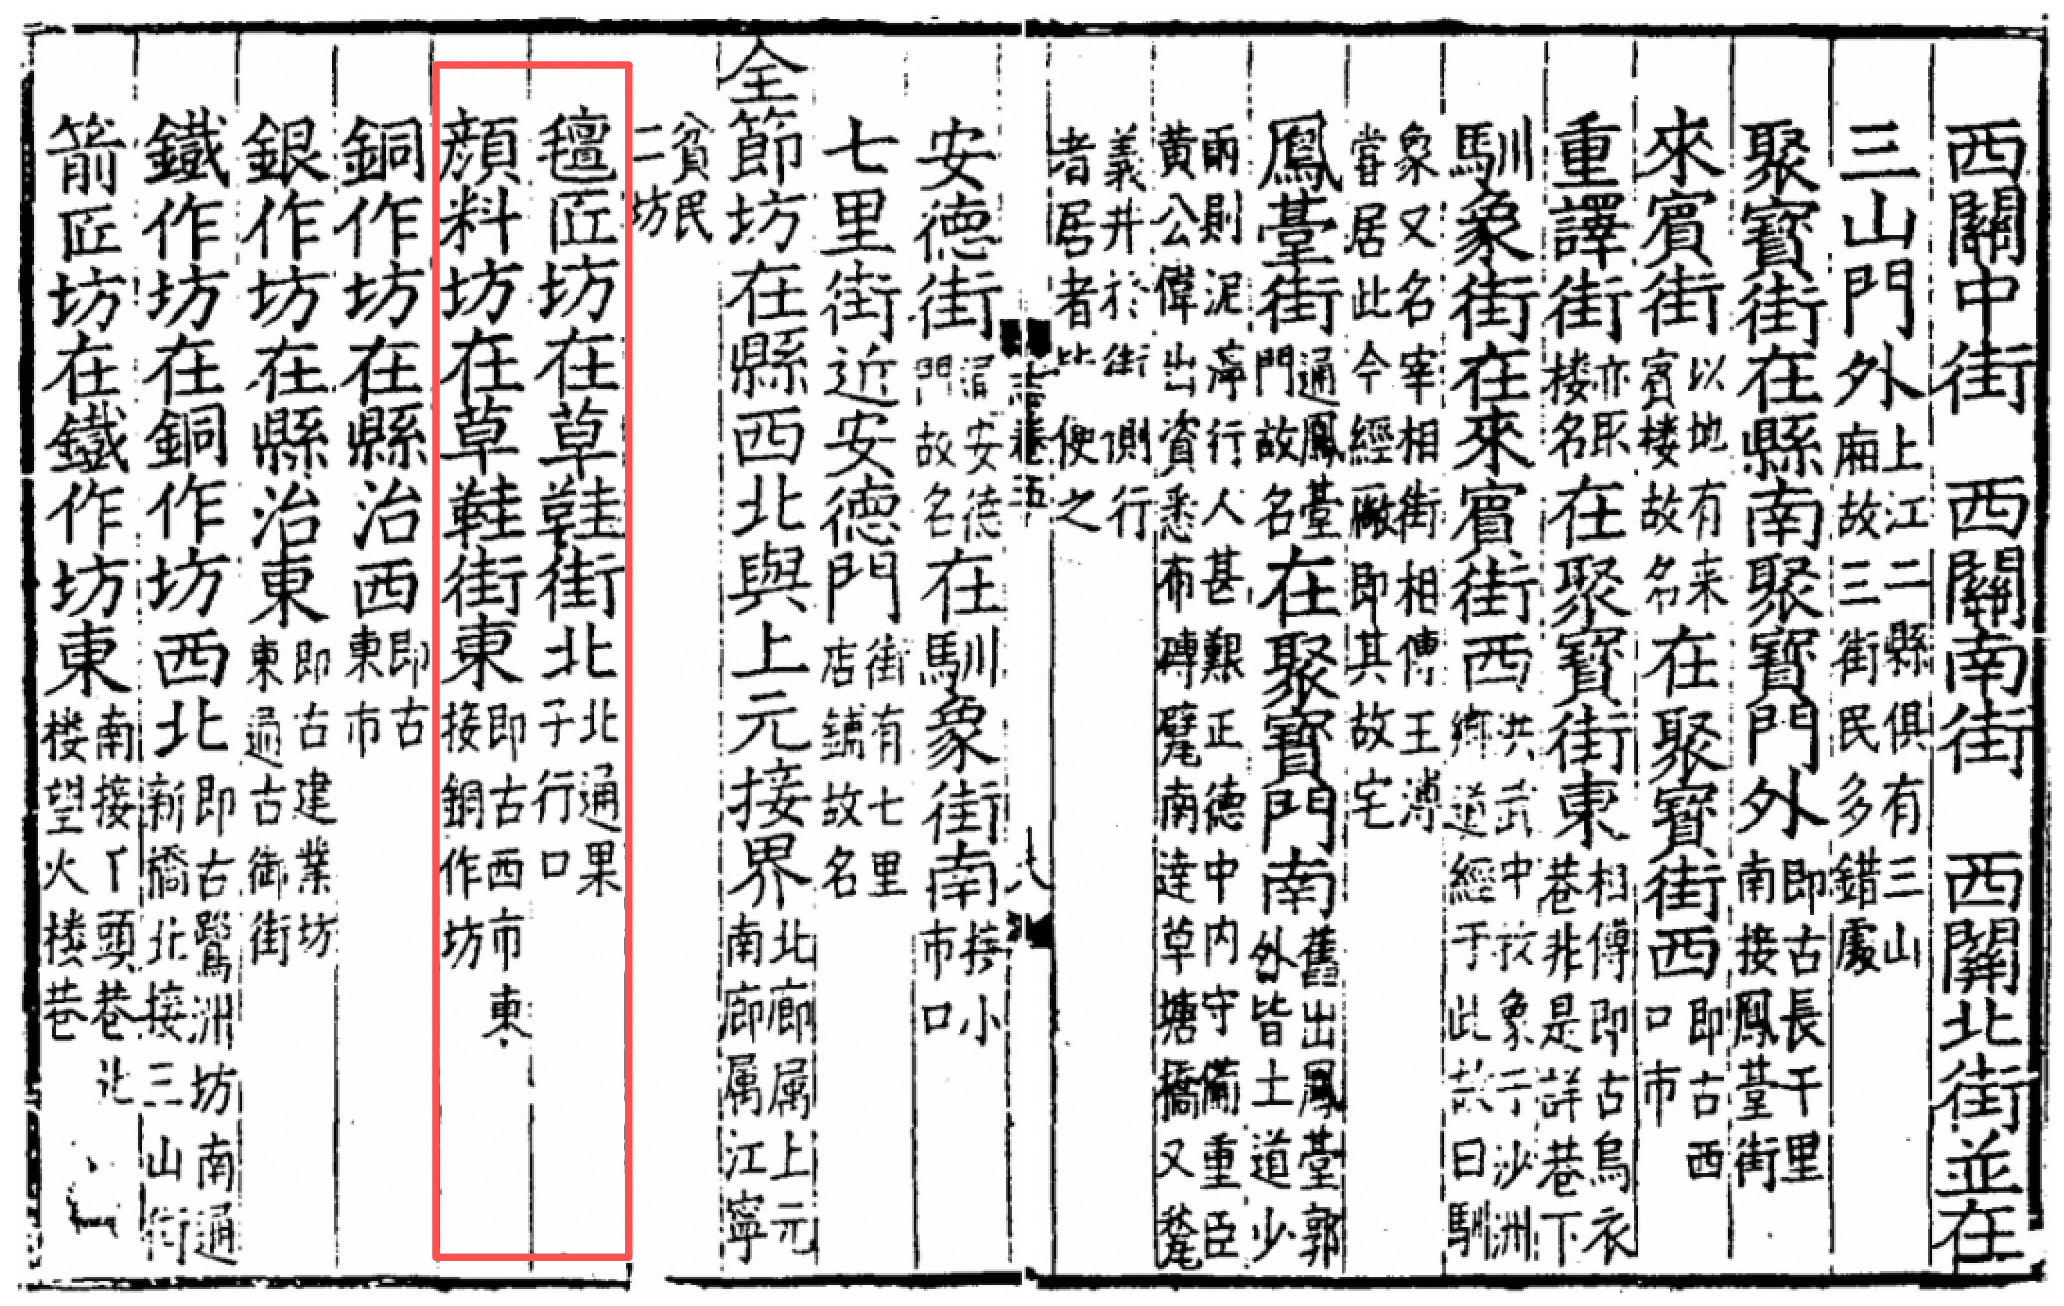 西關中街　西關南街　西關北街並在
三山門外上江二縣俱有三山廂故三街民多錯處
聚寶街在縣南聚寶門外即古長干里南接鳳臺街
來賓街以地有来賓楼故名在聚寶街西即古西口市
重譯街亦取楼名在聚寶街東相傳即古烏衣巷非是詳巷下
馴象街在來賓街西洪武中放象于沙洲鄉道經于此故曰馴
象又名宰相街相傳王溥嘗居此今經廠即其故宅
鳳臺街通鳳臺門故名在聚寶門南舊出鳳臺郭外皆土道少
雨則泥濘行人甚艱正德中内守備重臣黄公偉出資悉布磚甃南達草塘橋又甃
義井於街側行者居者便之
志卷五
八
安德街安德門故名在馴象街南接小市口
七里街近安德門街有七里店鋪故名
全節坊在縣西北與上元接界北廊属上元南廊属江寧
貧民二坊
氊匠坊在草鞋街北北通果子行口
顔料坊在草鞋街東即古西市東接銅作坊
銅作坊在縣治西即古東市
銀作坊在縣治東即古建業坊東通古御街
鐵作坊在銅作坊西北即古鷺洲坊南通新橋北接三山街
箭匠坊在鐵作坊東南接丫頭巷北楼望火楼巷